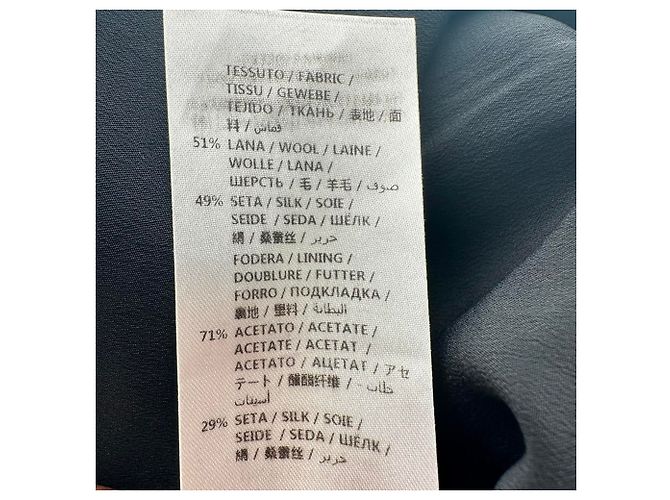 TESSUTO / FABRIC /
TISSU / GEWEBE /
TEJIDO / ТКАНЬ / 表地 / 面
料 / قماش
51% LANA / WOOL / LAINE /
WOLLE / LANA /
ШЕРСТЬ / 毛 / 羊毛 / صوف
49% SETA / SILK / SOIE /
SEIDE / SEDA / ШЁЛК /
絹 / 桑蚕丝 / حرير
FODERA / LINING /
DOUBLURE / FUTTER /
FORRO / ПОДКЛАДКА /
裏地 / 里料 / البطانة
71% ACETATO / ACETATE /
ACETATE / ACETAT /
ACETATO / АЦЕТАТ / アセ
テート / 醋酯纤维 /
أسيتات
29% SETA / SILK / SOIE /
SEIDE / SEDA / ШЁЛК /
絹 / 桑蚕丝 / حرير